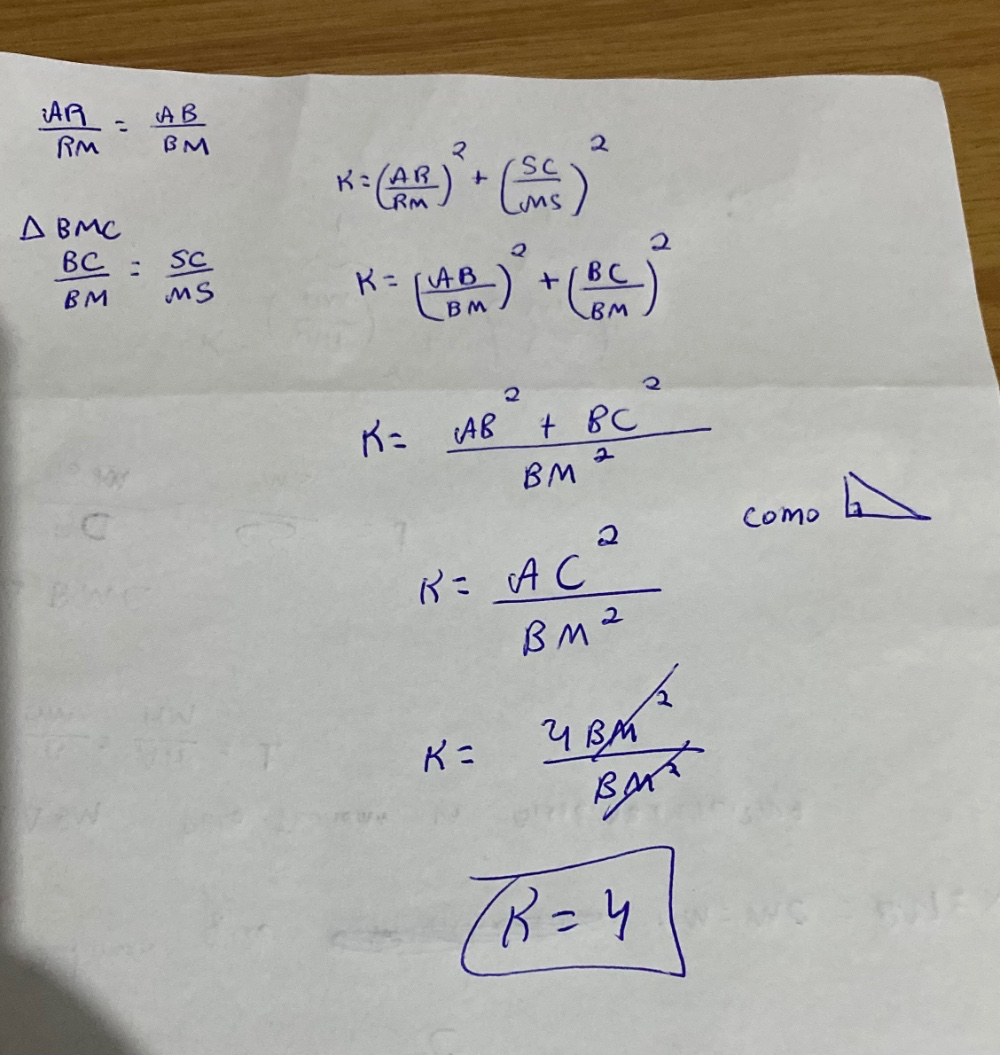 AR/RM = AB/BM
△ BMC
BC/BM = SC/MS
K = (AR/RM)² + (SC/MS)²
K = (AB/BM)² + (BC/BM)²
K = (AB² + BC²)/BM²
como
K = AC²/BM²
K = 4BM²/BM²
K = 4